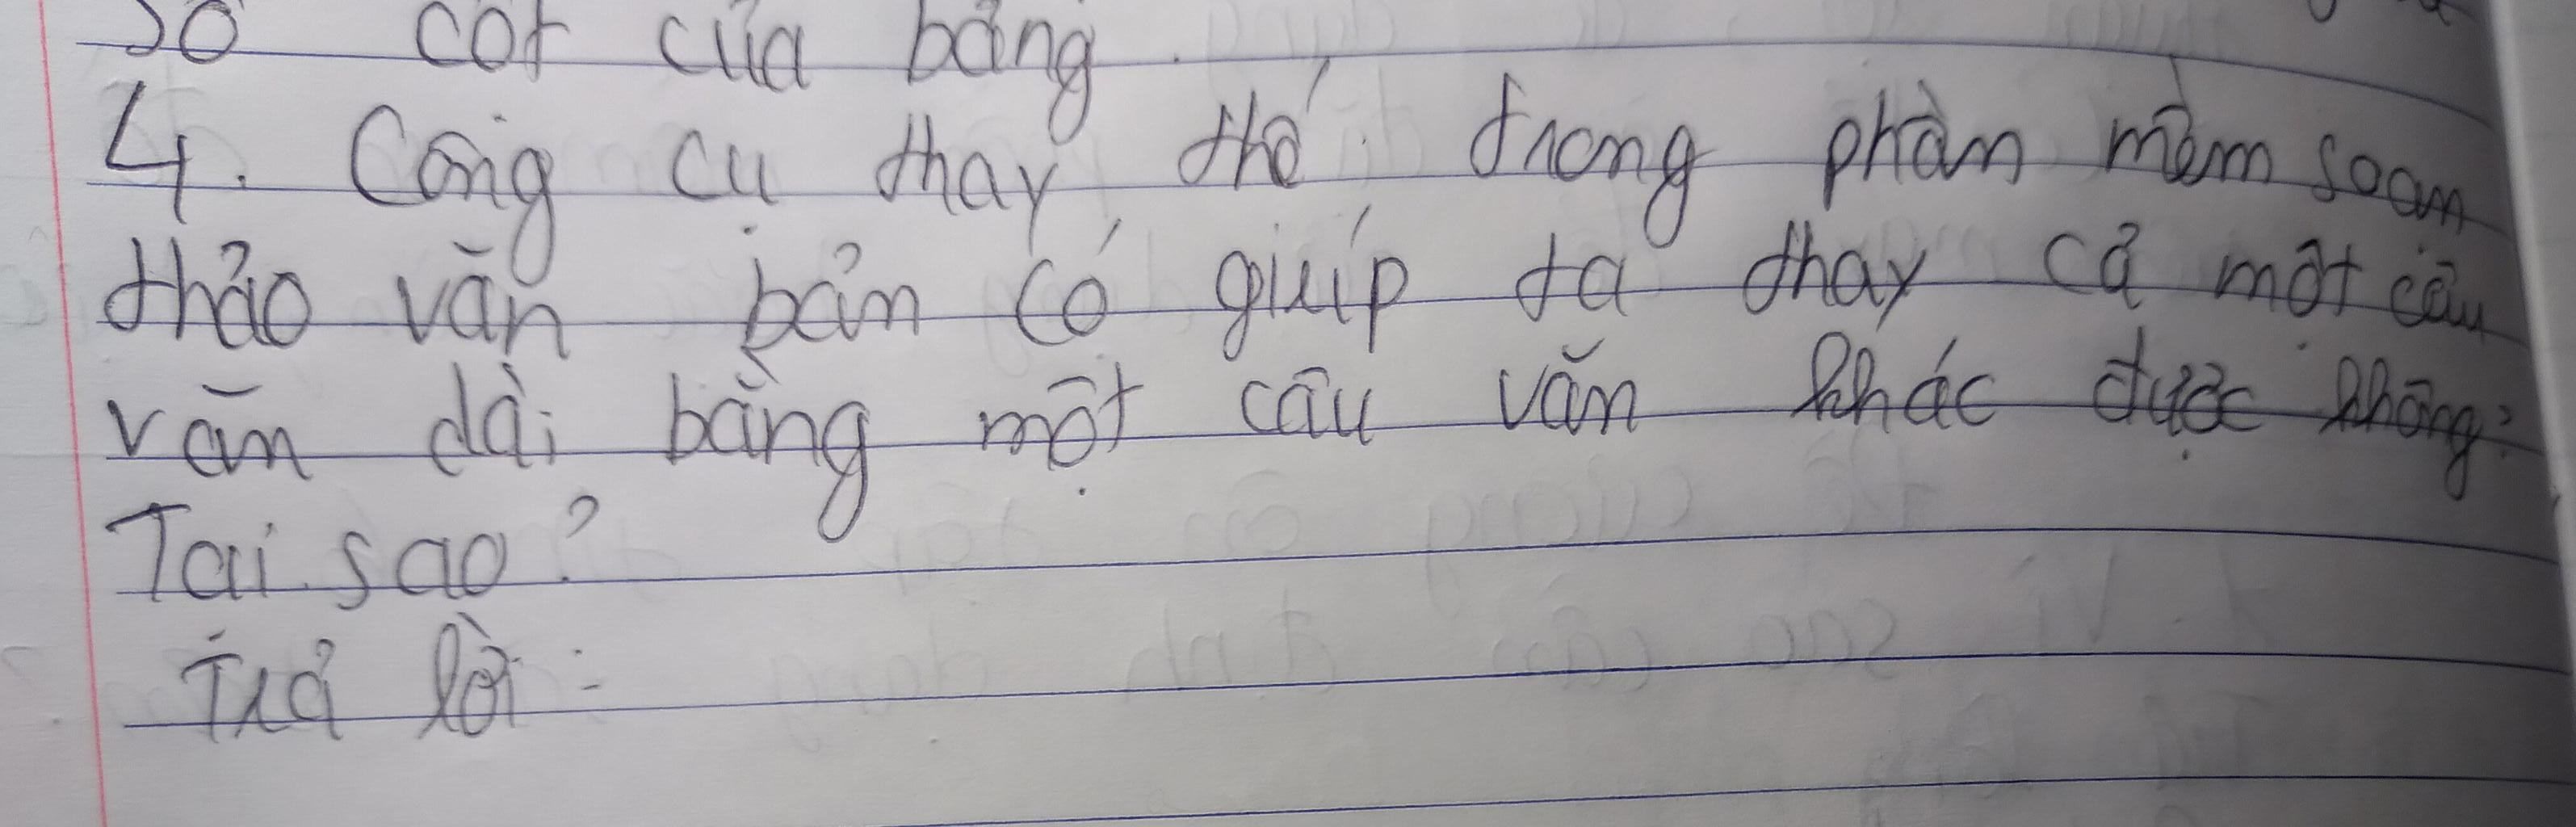 Số cột của bảng.
4. Công cụ thay thế trong phần mềm soạn
thảo văn bản có giúp ta thay cả một câu
văn dài bằng một câu văn khác được không?
Tại sao?
Trả lời: